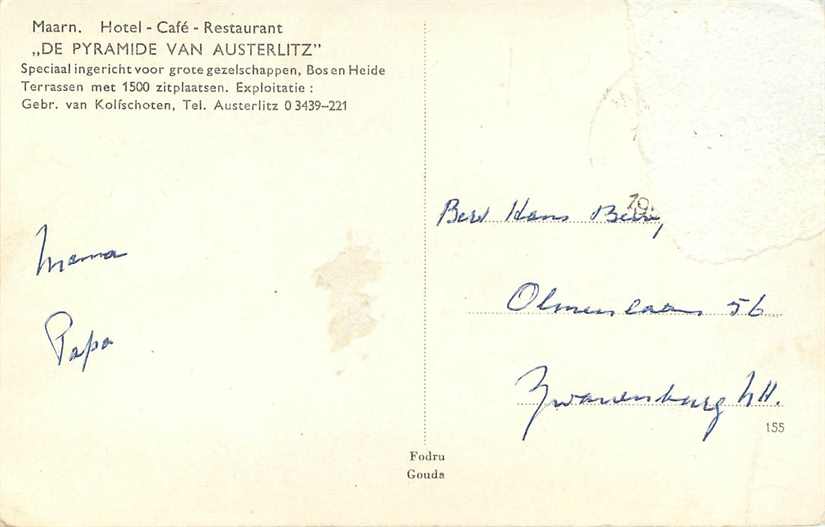 Maarn. Hotel - Café - Restaurant
„DE PYRAMIDE VAN AUSTERLITZ”
Speciaal ingericht voor grote gezelschappen, Bos en Heide
Terrassen met 1500 zitplaatsen. Exploitatie :
Gebr. van Kolfschoten, Tel. Austerlitz 0 3439-221
Mama
Papa
10.
Hans
Olmenlaan 56
Zwanenburg NH.
155
Fodru
Gouda